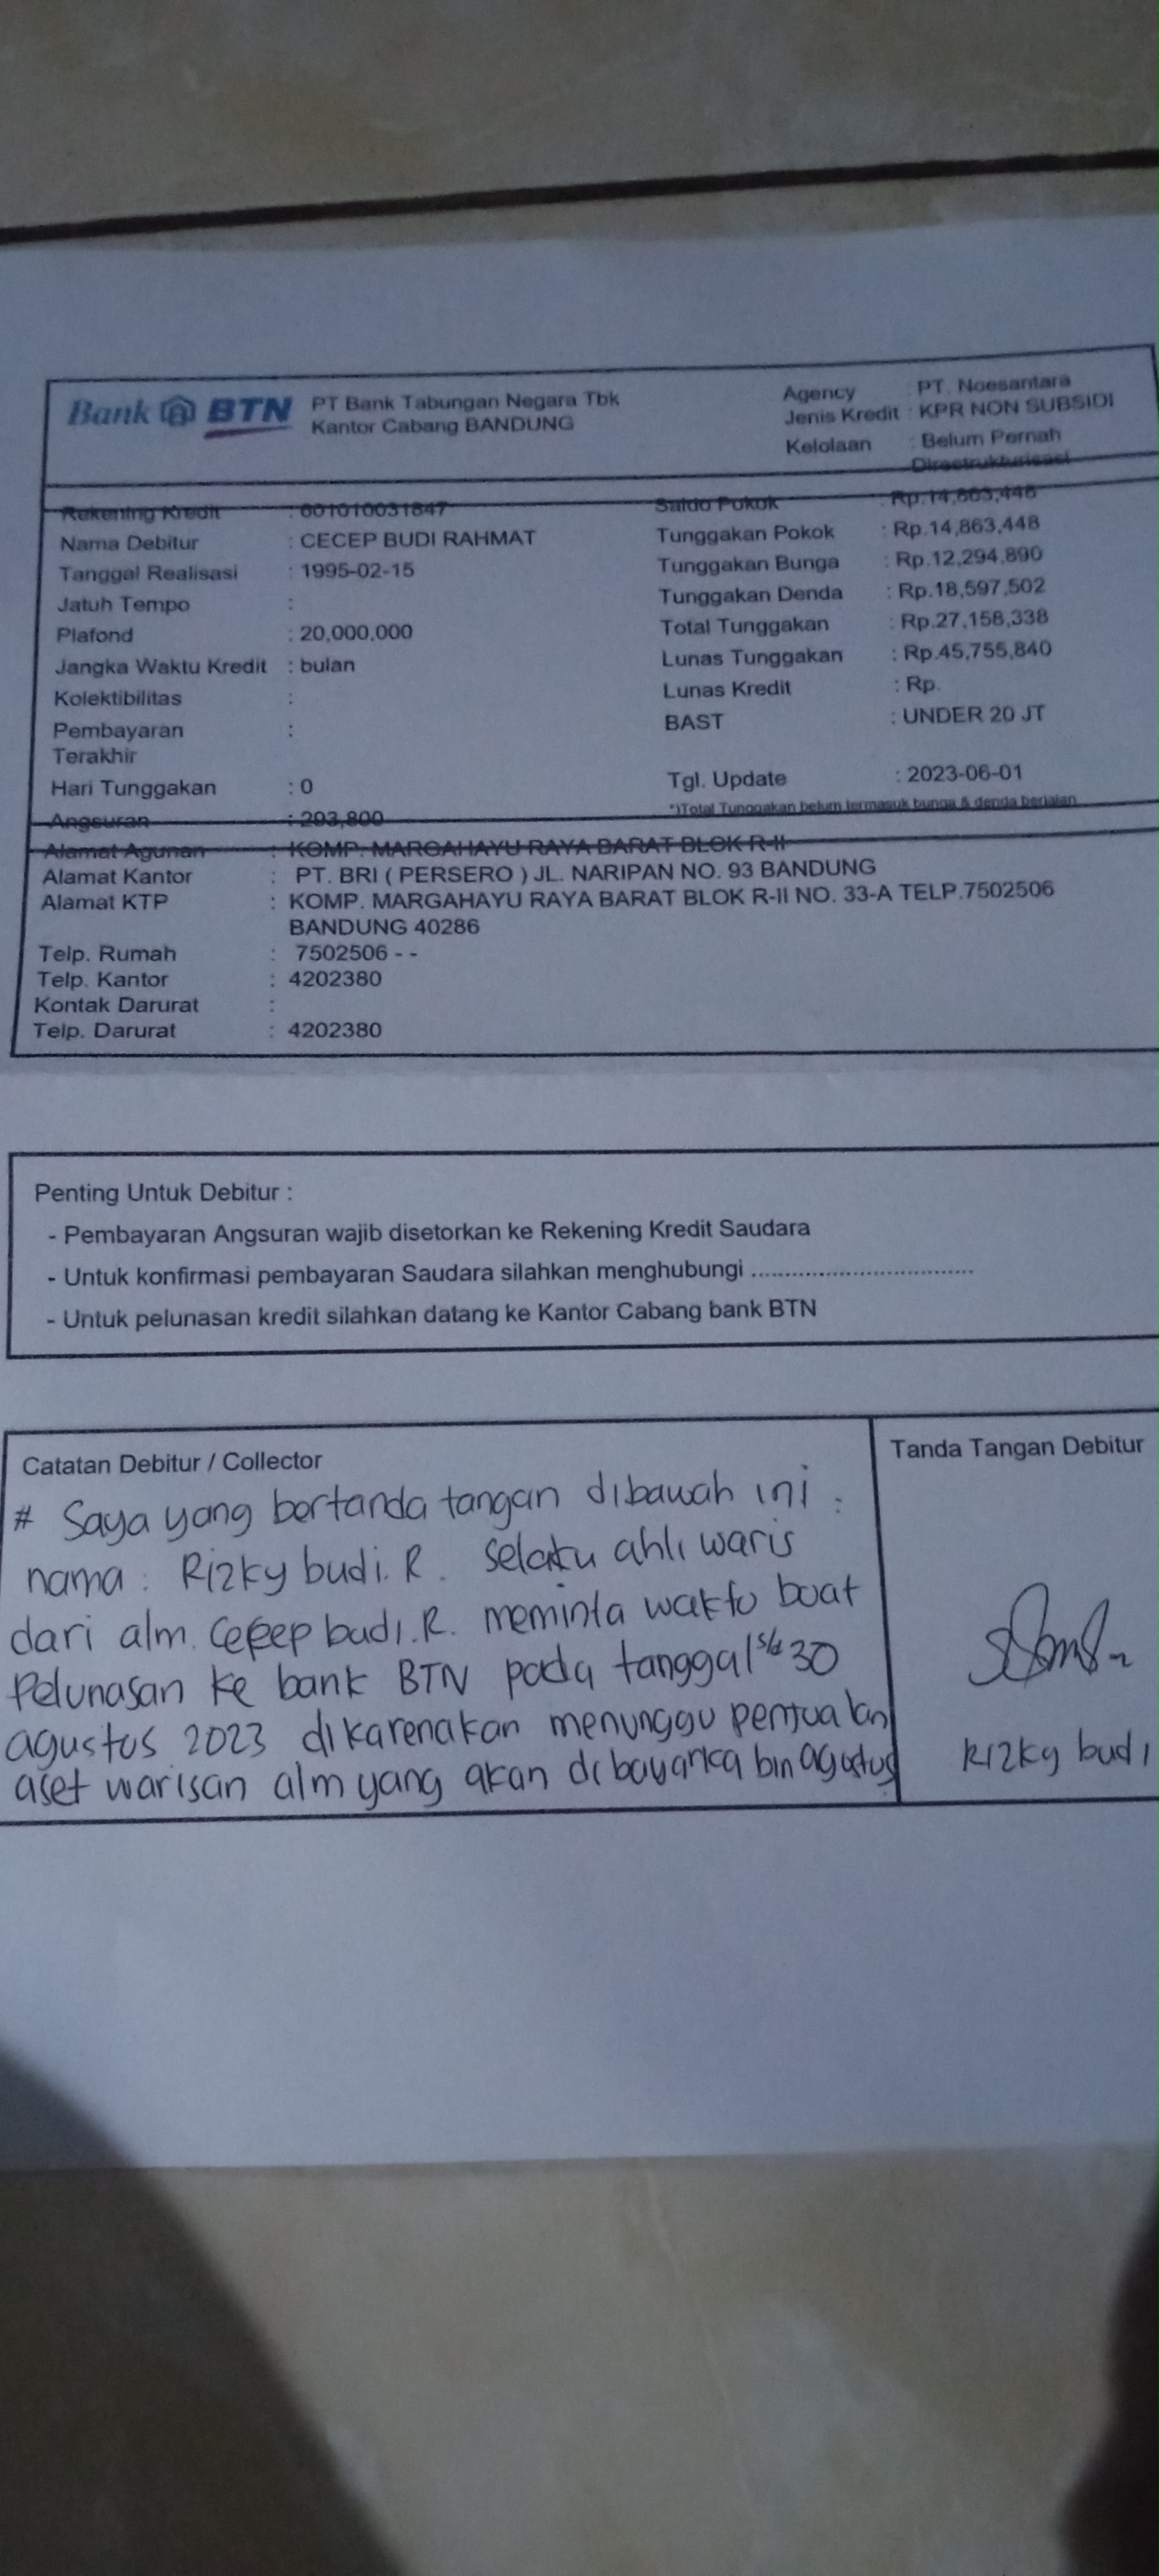 Bank BTN PT Bank Tabungan Negara Tbk
Kantor Cabang BANDUNG
Agency : PT. Noesantara
Jenis Kredit : KPR NON SUBSIDI
Kelolaan : Belum Pernah
Direstrukturisasi
Rekening Kredit : 601010031847
Nama Debitur : CECEP BUDI RAHMAT
Tanggal Realisasi : 1995-02-15
Jatuh Tempo :
Plafond : 20,000,000
Jangka Waktu Kredit : bulan
Kolektibilitas :
Pembayaran :
Terakhir
Hari Tunggakan : 0
Angsuran : 293,800
Saldo Pokok : Rp.14,863,448
Tunggakan Pokok : Rp.14,863,448
Tunggakan Bunga : Rp.12,294,890
Tunggakan Denda : Rp.18,597,502
Total Tunggakan : Rp.27,158,338
Lunas Tunggakan : Rp.45,755,840
Lunas Kredit : Rp.
BAST : UNDER 20 JT
Tgl. Update : 2023-06-01
*)Total Tunggakan belum termasuk bunga & denda berjalan
Alamat Agunan : KOMP. MARGAHAYU RAYA BARAT BLOK R-II
Alamat Kantor : PT. BRI ( PERSERO ) JL. NARIPAN NO. 93 BANDUNG
Alamat KTP : KOMP. MARGAHAYU RAYA BARAT BLOK R-II NO. 33-A TELP.7502506
BANDUNG 40286
Telp. Rumah : 7502506 - -
Telp. Kantor : 4202380
Kontak Darurat :
Telp. Darurat : 4202380
Penting Untuk Debitur :
- Pembayaran Angsuran wajib disetorkan ke Rekening Kredit Saudara
- Untuk konfirmasi pembayaran Saudara silahkan menghubungi .................................
- Untuk pelunasan kredit silahkan datang ke Kantor Cabang bank BTN
Catatan Debitur / Collector
# Saya yang bertanda tangan dibawah ini :
nama : Rizky budi. R. Selaku ahli waris
dari alm. Cecep budi. R. meminta waktu buat
Pelunasan ke bank BTN pada tanggal s/d 30
agustus 2023 dikarenakan menunggu penjualan
aset warisan alm yang akan dibayarka bln agustus
Tanda Tangan Debitur
Rizky budi